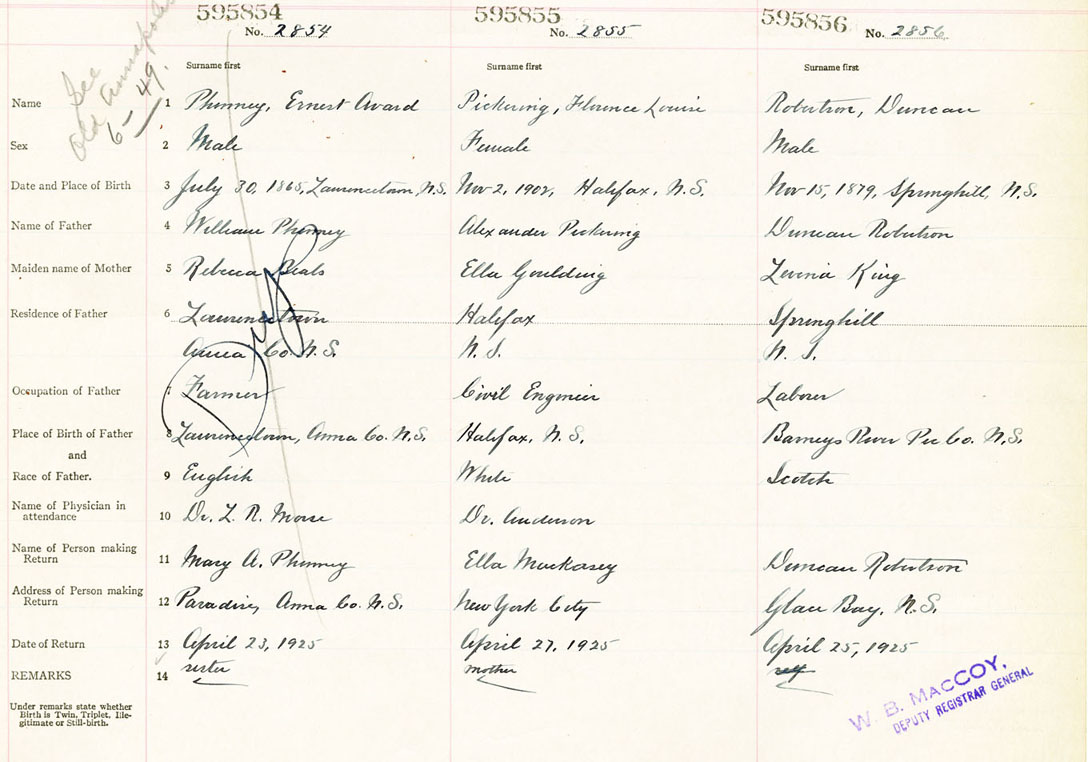 595854 595855 595856
No. 2854 No. 2855 No. 2856
See
Old Annapolis
6-49.
Surname first Surname first Surname first
Name 1 Phinney, Ernest Avard Pickering, Florence Louise Robertson, Duncan
Sex 2 Male Female Male
Date and Place of Birth 3 July 30, 1865, Lawrencetown, N.S. Nov 2, 1902, Halifax, N.S. Nov 15, 1879, Springhill, N.S.
Name of Father 4 William Phinney Alexander Pickering Duncan Robertson
Maiden name of Mother 5 Rebecca Beals Ella Goulding King
Residence of Father 6 Lawrencetown Halifax Springhill
Anna Co. N.S. N.S. N.S.
Occupation of Father 7 Farmer Civil Engineer Laborer
Place of Birth of Father 8 Lawrencetown, Anna Co. N.S. Halifax, N.S. Barneys River Pic Co. N.S.
and
Race of Father. 9 English White Scotch
Name of Physician in
attendance 10 Dr. L. R. Morse Dr. Anderson
Name of Person making
Return 11 Mary A. Phinney Ella Duncan Robertson
Address of Person making
Return 12 Paradise, Anna Co. N.S. New York City Glace Bay, N.S.
Date of Return 13 April 23, 1925 April 27, 1925 April 25, 1925
REMARKS 14 sister mother self
Under remarks state whether
Birth is Twin, Triplet, Ille-
gitimate or Still-birth.
W. B. MACCOY,
DEPUTY REGISTRAR GENERAL